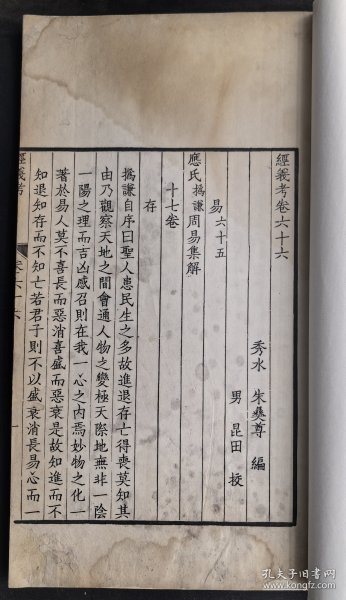 經義考卷六十六
秀水 朱彝尊 編
男 昆田 校
易六十五
應氏撝謙周易集解
十七卷
存
撝謙自序曰聖人患民生之多故進退存亡得喪莫知其
由乃觀察天地之間會通人物之變極天際地無非一陰
一陽之理而吉凶感召則在我一心之內焉妙物之化一
著於易人莫不喜長而惡消喜盛而惡衰是故知進而不
知退知存而不知亡若君子則不以盛衰消長易心而一
經義考 卷六十六 一
孔夫子旧书网
www.kongfz.com